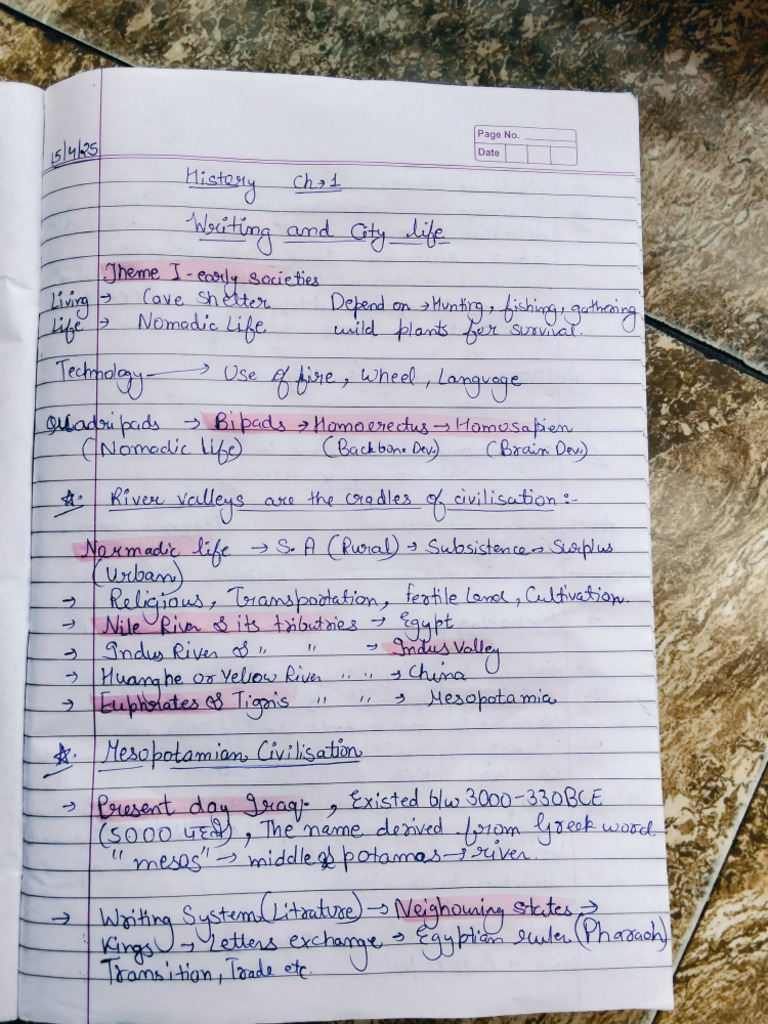 Page No.
Date
15/4/25
History Ch→1
Writing and City life
Theme I - early societies
Living → Cave Shelter Depend on → Hunting, fishing, gathering
Life → Nomadic Life wild plants for survival.
Technology → Use of fire, Wheel, Language
Quadripads → Bipads → Homoerectus → Homosapien
(Nomadic life) (Backbone Dev.) (Brain Dev.)
☆. River valleys are the cradles of civilisation:-
Normadic life → S.A (Rural) → Subsistence → Surplus
(Urban)
→ Religious, Transportation, fertile Land, Cultivation.
→ Nile River & its tributries → Egypt
→ Indus River & " " → Indus Valley
→ Huanghe or Yellow River " " → China
→ Euphrates & Tigris " " → Mesopotamia
☆. Mesopotamian Civilisation
→ Present day Iraq. , Existed b/w 3000-330BCE
(5000 पहले), The name derived from Greek word
"mesos" → middle & potamas → river.
→ Writing System (Litrature) → Neighouring states →
Kings → Letters exchange → Egyptian ruler (Pharaoh)
Transition, Trade etc.